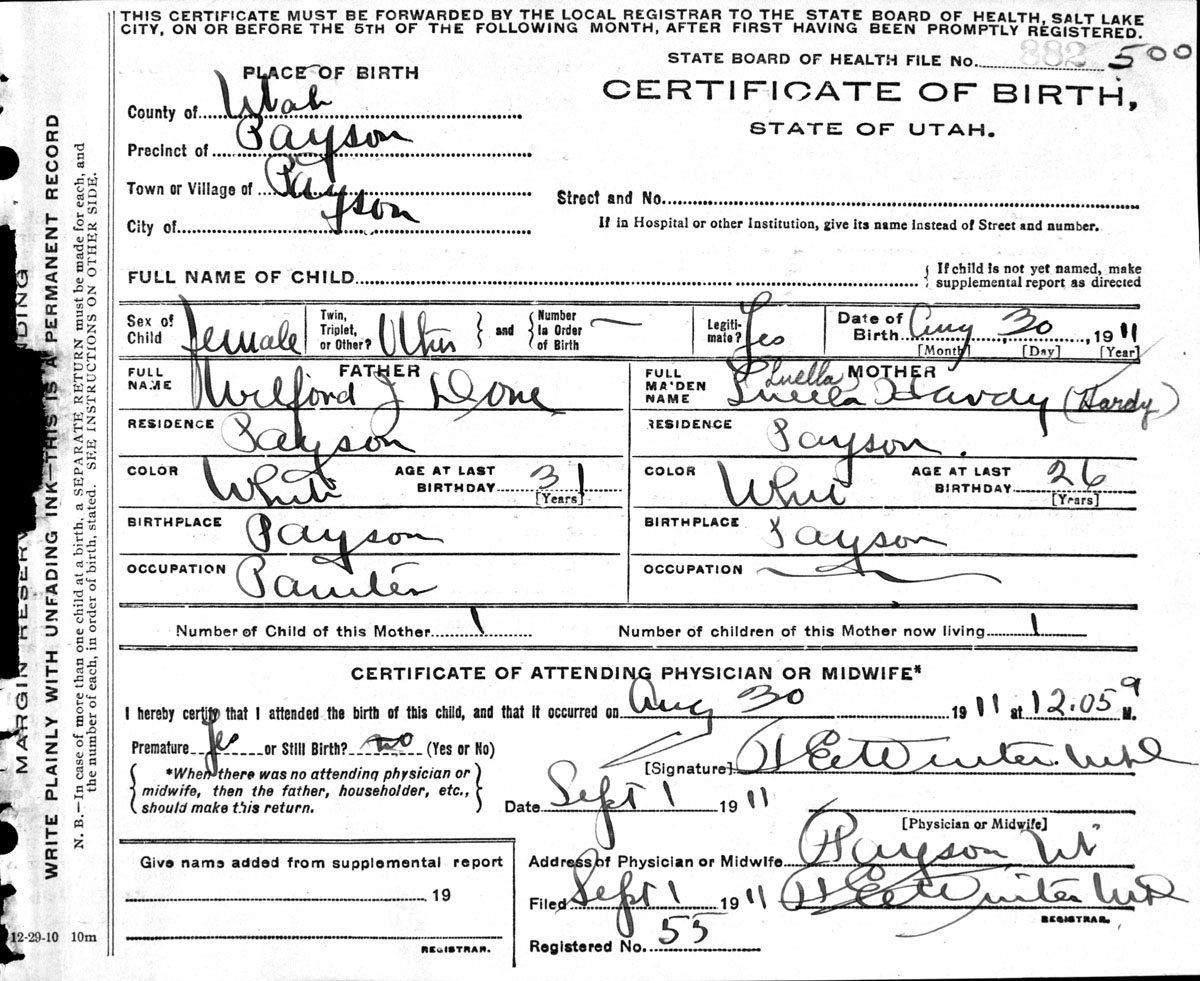 THIS CERTIFICATE MUST BE FORWARDED BY THE LOCAL REGISTRAR TO THE STATE BOARD OF HEALTH, SALT LAKE
CITY, ON OR BEFORE THE 5TH OF THE FOLLOWING MONTH, AFTER FIRST HAVING BEEN PROMPTLY REGISTERED.
STATE BOARD OF HEALTH FILE No. 882 500
PLACE OF BIRTH
CERTIFICATE OF BIRTH,
STATE OF UTAH.
County of Utah
Precinct of Payson
Town or Village of Payson
Street and No.
City of Payson
If in Hospital or other Institution, give its name instead of Street and number.
FULL NAME OF CHILD
{ If child is not yet named, make
supplemental report as directed
Sex of Child Female
Twin, Triplet, or Other?
and
Number In Order of Birth
Legiti-mate? Yes
Date of Birth Aug 30, 1911
[Month] [Day] [Year]
FATHER
FULL NAME Wilford J Done
MOTHER
FULL MAIDEN NAME Luella Luella Hardy (Hardy)
RESIDENCE Payson
RESIDENCE Payson.
COLOR White
AGE AT LAST BIRTHDAY 31
[Years]
COLOR Whit
AGE AT LAST BIRTHDAY 26
[Years]
BIRTHPLACE Payson
BIRTHPLACE Payson
OCCUPATION Painter
OCCUPATION
Number of Child of this Mother 1
Number of children of this Mother now living 1
CERTIFICATE OF ATTENDING PHYSICIAN OR MIDWIFE*
I hereby certify that I attended the birth of this child, and that it occurred on Aug 30 1911 at 12.05 a M.
Premature Yes or Still Birth? no (Yes or No)
*When there was no attending physician or
midwife, then the father, householder, etc.,
should make this return.
[Signature]
Date Sept 1 1911
[Physician or Midwife]
Give name added from supplemental report
Address of Physician or Midwife Payson Ut
19
Filed Sept 1 1911
REGISTRAR.
REGISTRAR.
Registered No. 55
12-29-10 10m
MARGIN RESERV NDING
WRITE PLAINLY WITH UNFADING INK—THIS IS A PERMANENT RECORD
N. B.—In case of more than one child at a birth, a SEPARATE RETURN must be made for each, and
the number of each, in order of birth, stated. SEE INSTRUCTIONS ON OTHER SIDE.